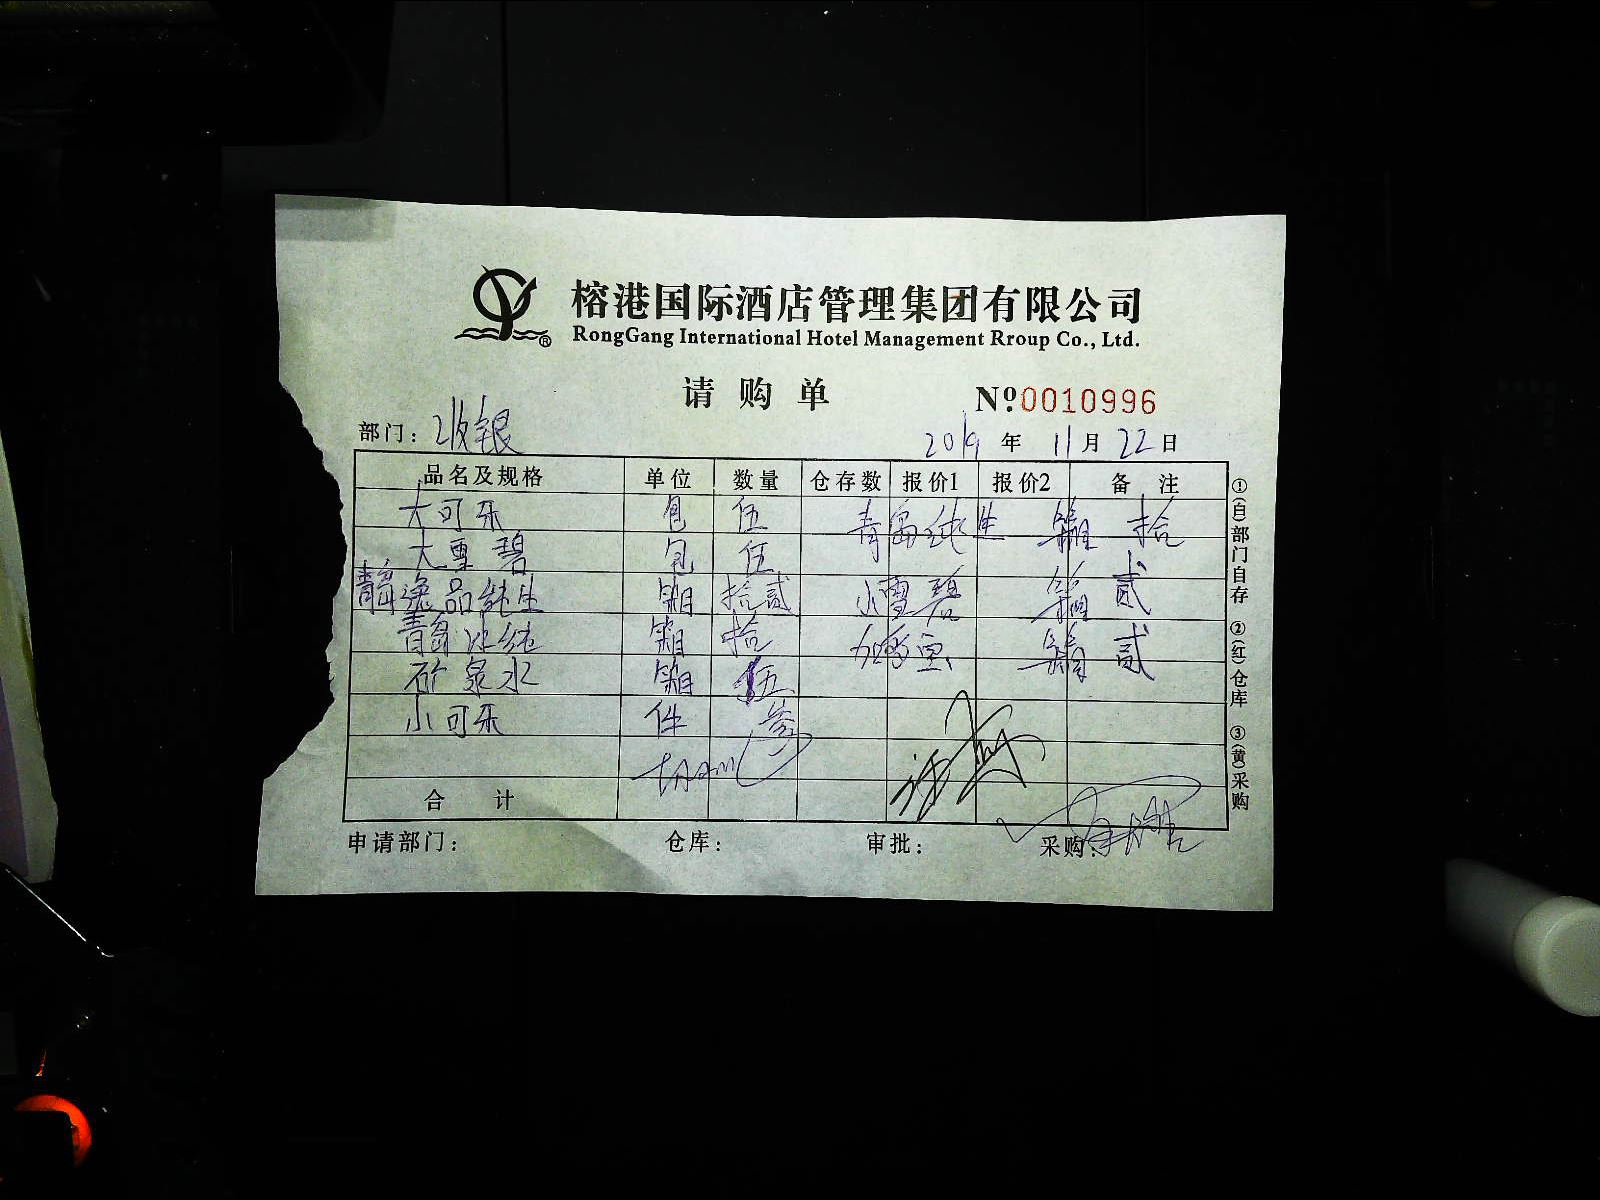 榕港国际酒店管理集团有限公司
RongGang International Hotel Management Rroup Co., Ltd.
®
请购单
Nº.0010996
部门：收银
2019年11月22日
品名及规格 单位 数量 仓存数 报价1 报价2 备注
大可乐 包 伍 青岛纯生 箱 拾
大雪碧 包 伍
青岛逸品纯生 箱 拾贰 小雪碧 箱 贰
青岛冰纯 箱 拾 箱 贰
矿泉水 箱 伍
小可乐 件 叁
合计
申请部门： 仓库： 审批： 采购：
①(白)部门自存 ②(红)仓库 ③(黄)采购